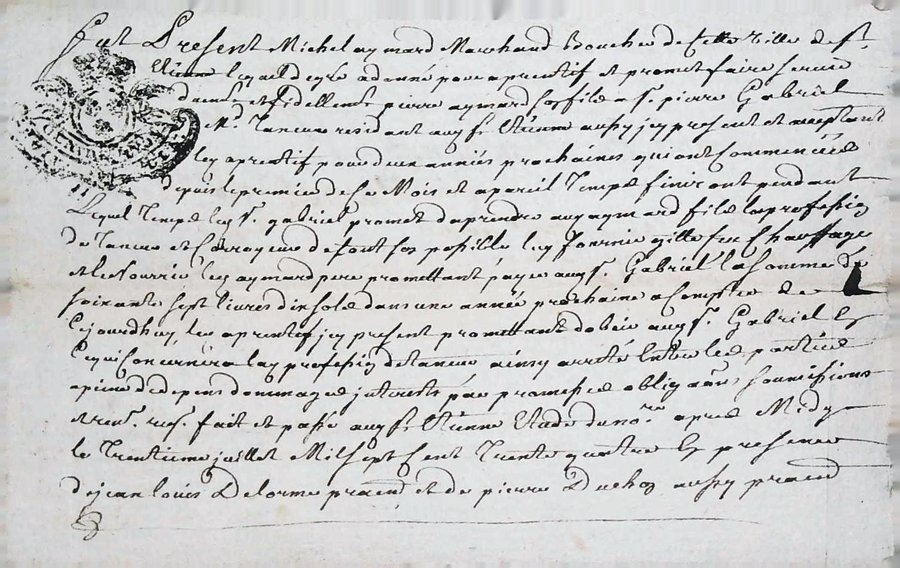 Fut Present Michel aymard Marchand Boucher de cette ville de st.
Etienne lequel de gré a donné pour aprentif et promet faire servir
et fidellemt. pierre aymard son fils a sr. pierre Gabriel
Me. Taneur residant aud st. Etienne aussy icy present et acceptant
led aprentif pour deux années prochaines qui ont commencées
depuis le premier de ce Mois et a pareil Temps finiront pendant
Lequel Temps led sr. gabriel promet daprendre aud aymard fils la profession
de Taneur et Corroyeur de tout son possible luy fournir gitte feu Chauffage
et le Nourrir led aymard pere promettant payer aud sr. Gabriel la Somme de
soixante sept livres dix sols dans une année prochaine a Compter de
Cejourdhuy, led aprentif icy present promettant dobeir aud sr. Gabriel En
ce qui Concernera lad profession de taneur ainsy arreté Entre les parties
a peine de depens dommages interets par promesses obligaons, soumissions
et ren. fait et passé aud st. Etienne Etude du nore. apres Midy
le Trentieme juillet Mil sept Cent Trente quatre En presence
de jean louis Delorme pratd. et de pierre aussy pratd